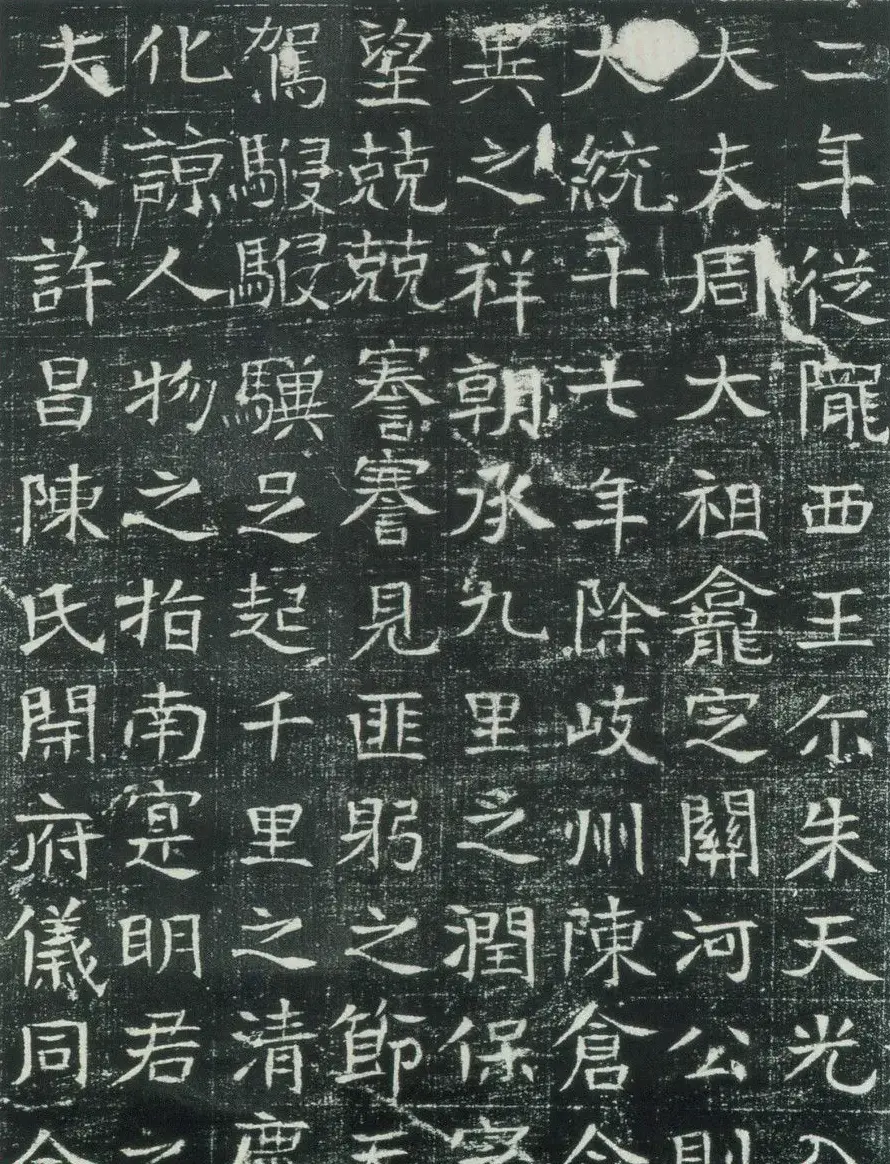 二年從隴西王尒朱天光入
大夫周大祖龕定關河公則
大統十七年除岐州陳倉令
異之祥朝承九里之潤保
望兢兢謇謇見匪躬之節
駕駸駸驥足起千里之清
化諒人物之指南寔明君之
夫人許昌陳氏開府儀同